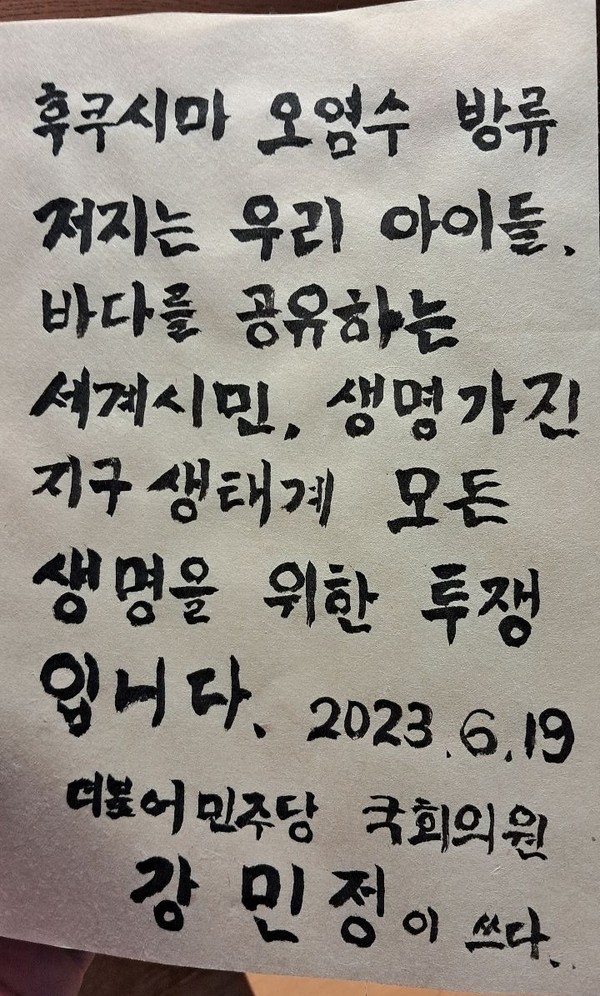 후쿠시마 오염수 방류
저지는 우리 아이들,
바다를 공유하는
세계시민, 생명가진
지구 생태계 모든
생명을 위한 투쟁
입니다. 2023.6.19
더불어민주당 국회의원
강민정이 쓰다.